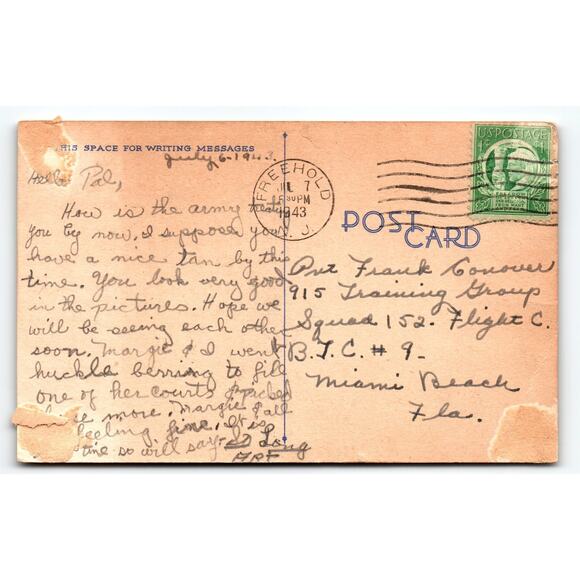 THIS SPACE FOR WRITING MESSAGES
July 6-1943.
Hello Pal,
How is the army treating
you by now. I suppose you
have a nice tan by this
time. You look very good
in the pictures. Hope we
will be seeing each other
soon. Margie & I went
huckle berring to fill
one of her courts & packed
more. Margie & all
feeling fine. It is
time so will say-
So Long
ART
FREEHOLD
JUL 7
PM
1943
N. J.
U.S. POSTAGE
1¢
POST
CARD
Pvt Frank Conover
915 Training Group
Squad 152- Flight C.
B.T.C. # 9-
Miami Beach
Fla.